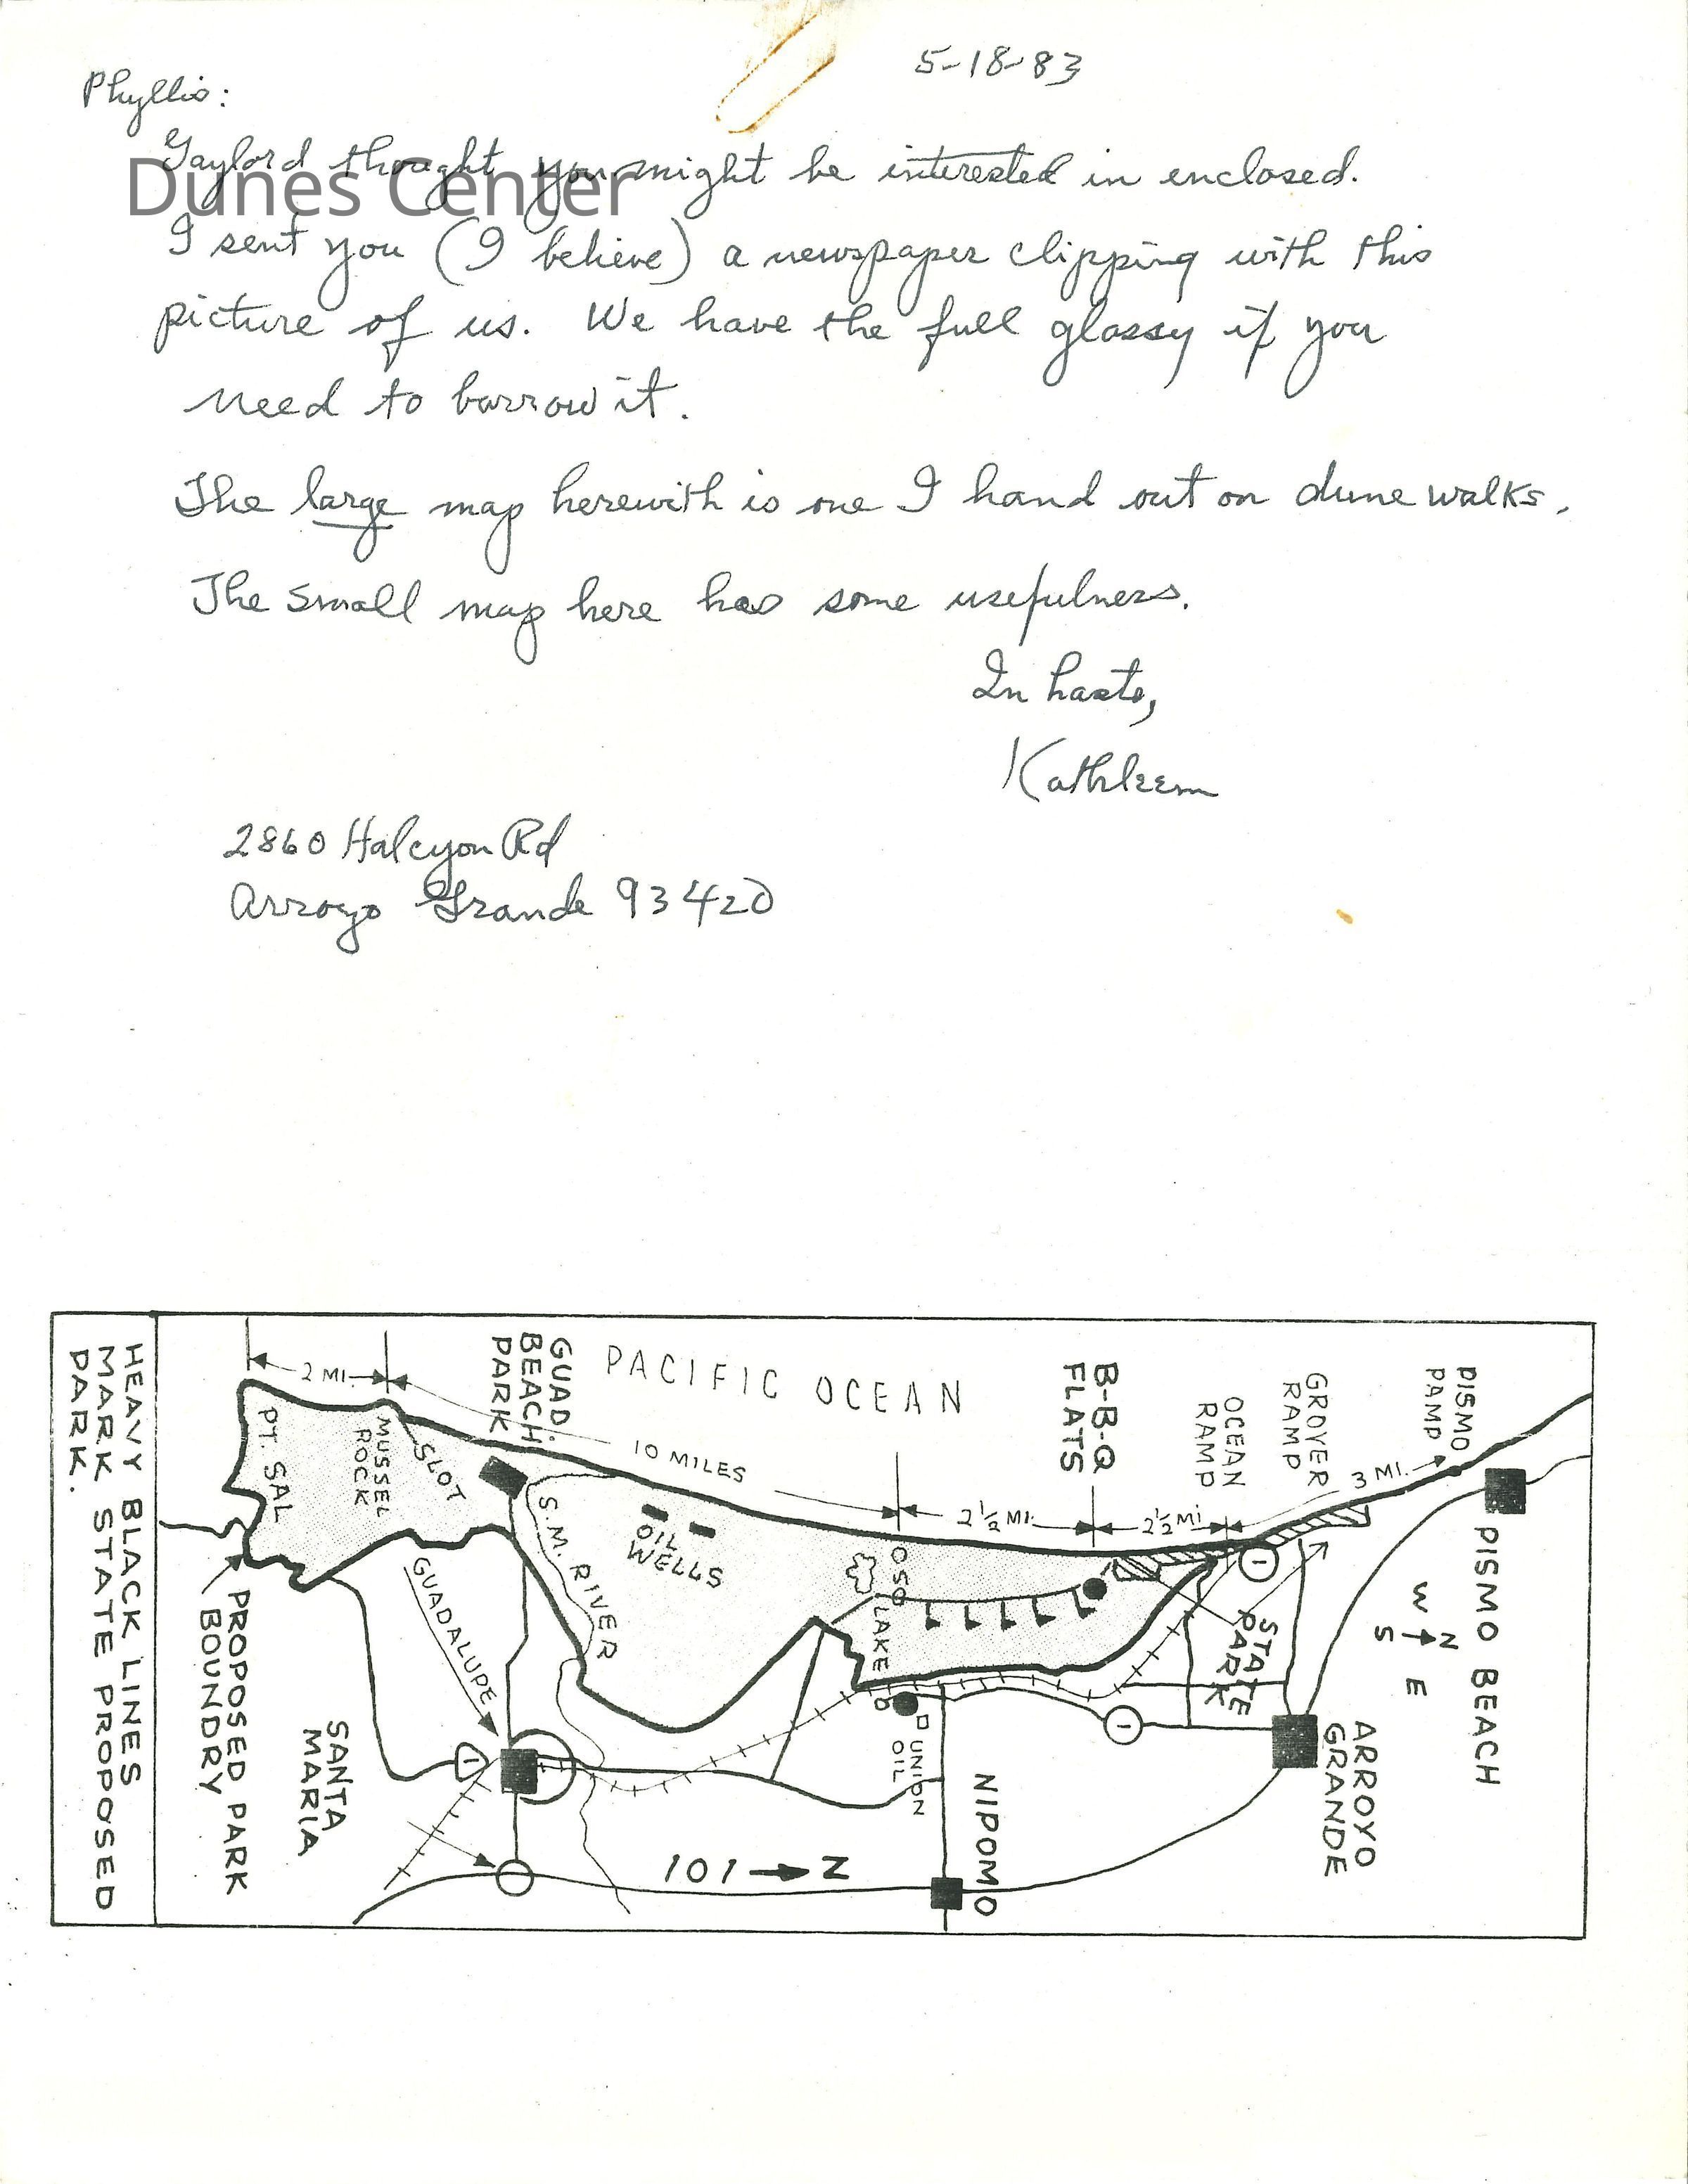 5-18-83
Phyllis:
Gaylord thought you might be interested in enclosed.
Dunes Center
I sent you (I believe) a newspaper clipping with this
picture of us. We have the full glossy if you
need to borrow it.
The large map herewith is one I hand out on dune walks.
The small map here has some usefulness.
In haste,
Kathleen
2860 Halcyon Rd
Arroyo Grande 93420
HEAVY BLACK LINES
MARK STATE PROPOSED
PARK.
2 MI.
PT. SAL
MUSSEL
ROCK
SLOT
GUAD.
BEACH
PARK
PACIFIC OCEAN
10 MILES
S.M. RIVER
OIL
WELLS
OSO
LAKE
B-B-Q
FLATS
2½ MI.
2½ MI
OCEAN
RAMP
GROVER
RAMP
3 MI.
PISMO
RAMP
PISMO BEACH
W
S
N
E
1
STATE
PARK
1
ARROYO
GRANDE
UNION
OIL
NIPOMO
101 N
GUADALUPE
1
SANTA
MARIA
PROPOSED PARK
BOUNDRY